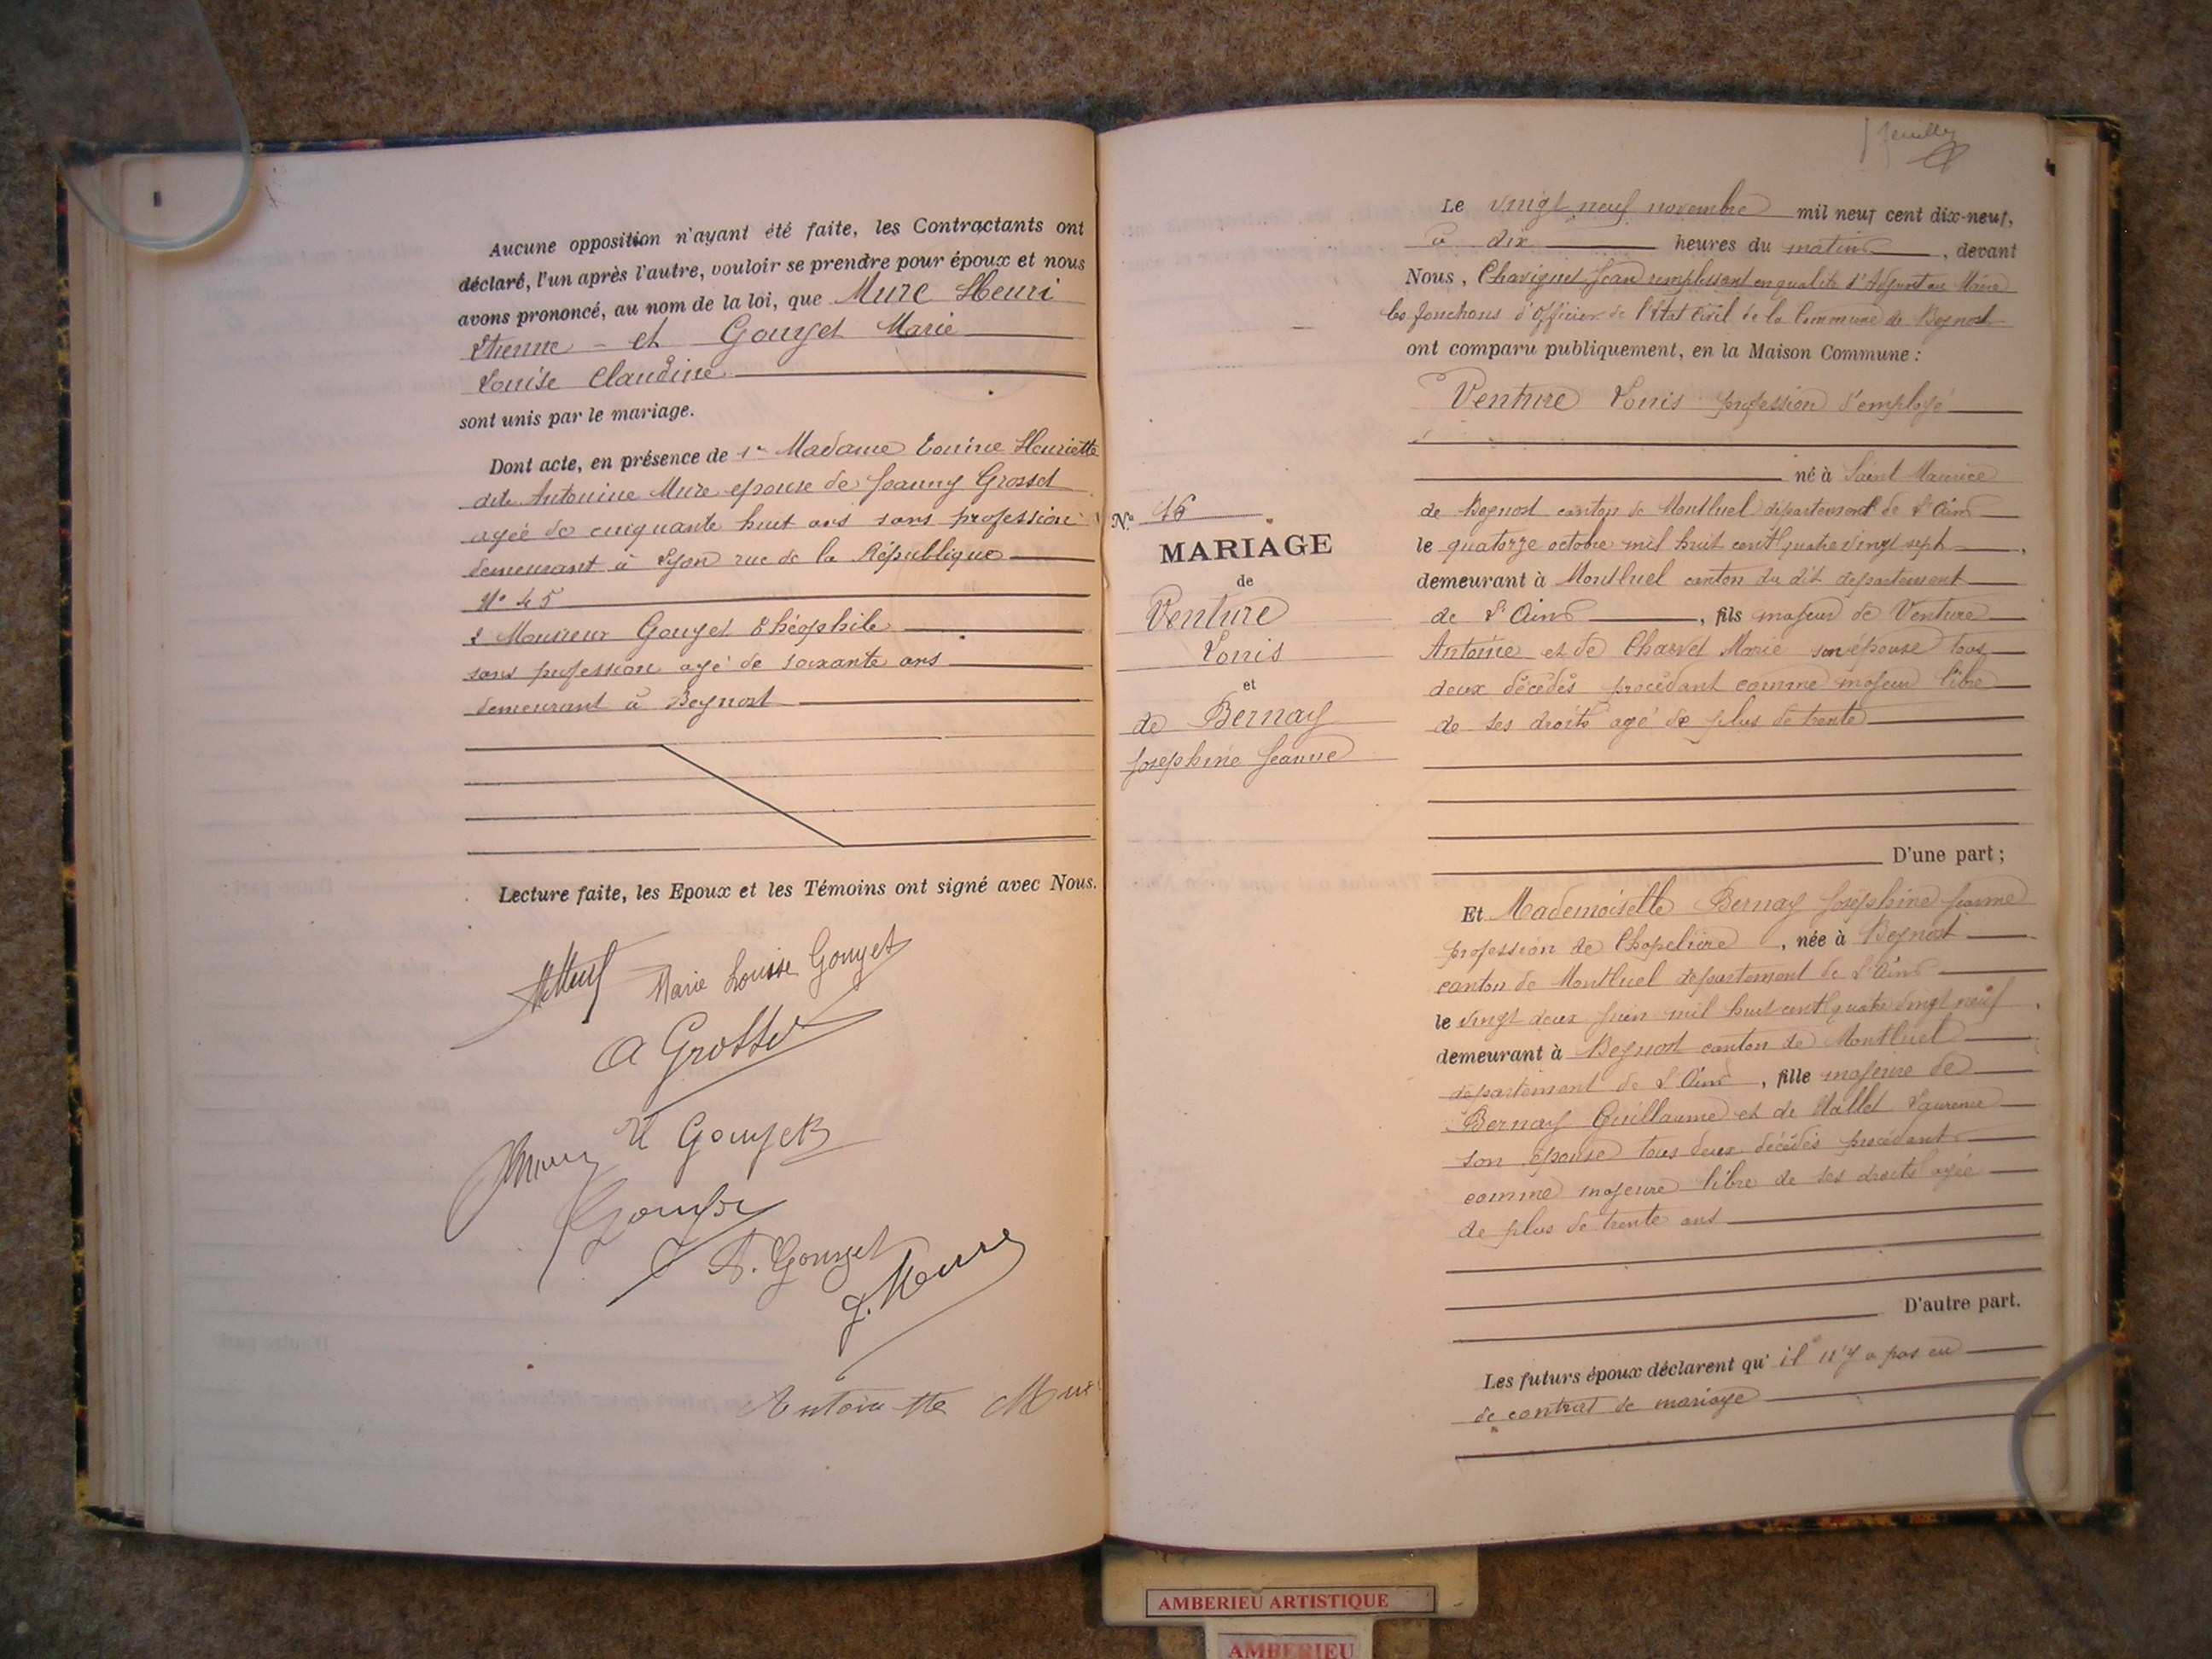 Aucune opposition n'ayant été faite, les Contractants ont
déclaré, l'un après l'autre, vouloir se prendre pour époux et nous
avons prononcé, au nom de la loi, que Mure Henri
Etienne - et Gouget Marie
Louise Claudine
sont unis par le mariage.
Dont acte, en présence de 1º Madame Henriette
dite Antonine Mure epouse de Joanny Grosset
agée de cinquante huit ans sans profession
demeurant à Lyon rue de la République
Nº 45
2 Monsieur Gouget Théophile
sans profession agé de soixante ans
demeurant à Beynost
Lecture faite, les Epoux et les Témoins ont signé avec Nous.
Marie Louise Gouget
A Grosset
Gouget
A. Gouget
J. Mure
Antoinette Mure
Le vingt neuf novembre mil neuf cent dix-neuf,
à dix heures du matin, devant
Nous, Chavignet Jean remplissant en qualité d'Adjoint au Maire
les fonctions d'Officier de l'Etat Civil de la Commune de Beynost
ont comparu publiquement, en la Maison Commune :
Venture Louis profession d'employé
né à Saint Maurice
de Beynost canton de Montluel departement de l'Ain
le quatorze octobre mil huit cent quatre vingt sept
demeurant à Montluel canton du dit departement
de l'Ain, fils majeur de Venture
Antoine et de Charvet Marie son épouse tous
deux décédés procédant comme majeur libre
de ses droits agé de plus de trente
D'une part ;
Nº 16
MARIAGE
de
Venture
Louis
et
de Bernay
Joséphine Jeanne
Et Mademoiselle Bernay Joséphine Jeanne
profession de Chapelière, née à Beynost
canton de Montluel departement de l'Ain
le vingt deux juin mil huit cent quatre vingt neuf
demeurant à Beynost canton de Montluel
departement de l'Ain, fille majeure de
Bernay Guillaume et de Mallet Laurence
son épouse tous deux décédés procédant
comme majeure libre de ses droits agée
de plus de trente ans
D'autre part.
Les futurs époux déclarent qu' il n'y a pas eu
de contrat de mariage
AMBERIEU ARTISTIQUE
AMBERIEU